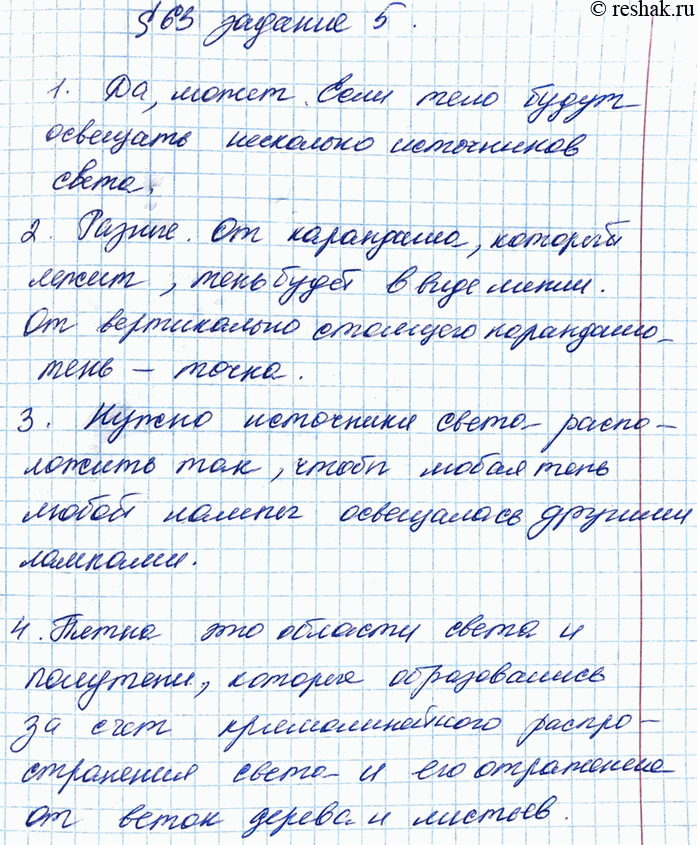 © reshak.ru
§63 задание 5.
1. Да, может. Если тело будут
освещать несколько источников
света.
2. Разные. От карандаша, который
лежит, тень будет в виде линии.
От вертикально стоящего карандаша
тень – точка.
3. Нужно источники света распо-
ложить так, чтобы любая тень
любой лампы освещалась другими
лампами.
4. Пятна это области света и
полутени, которые образовались
за счет прямолинейного распро-
странения света и его отражения
от веток дерева и листьев.